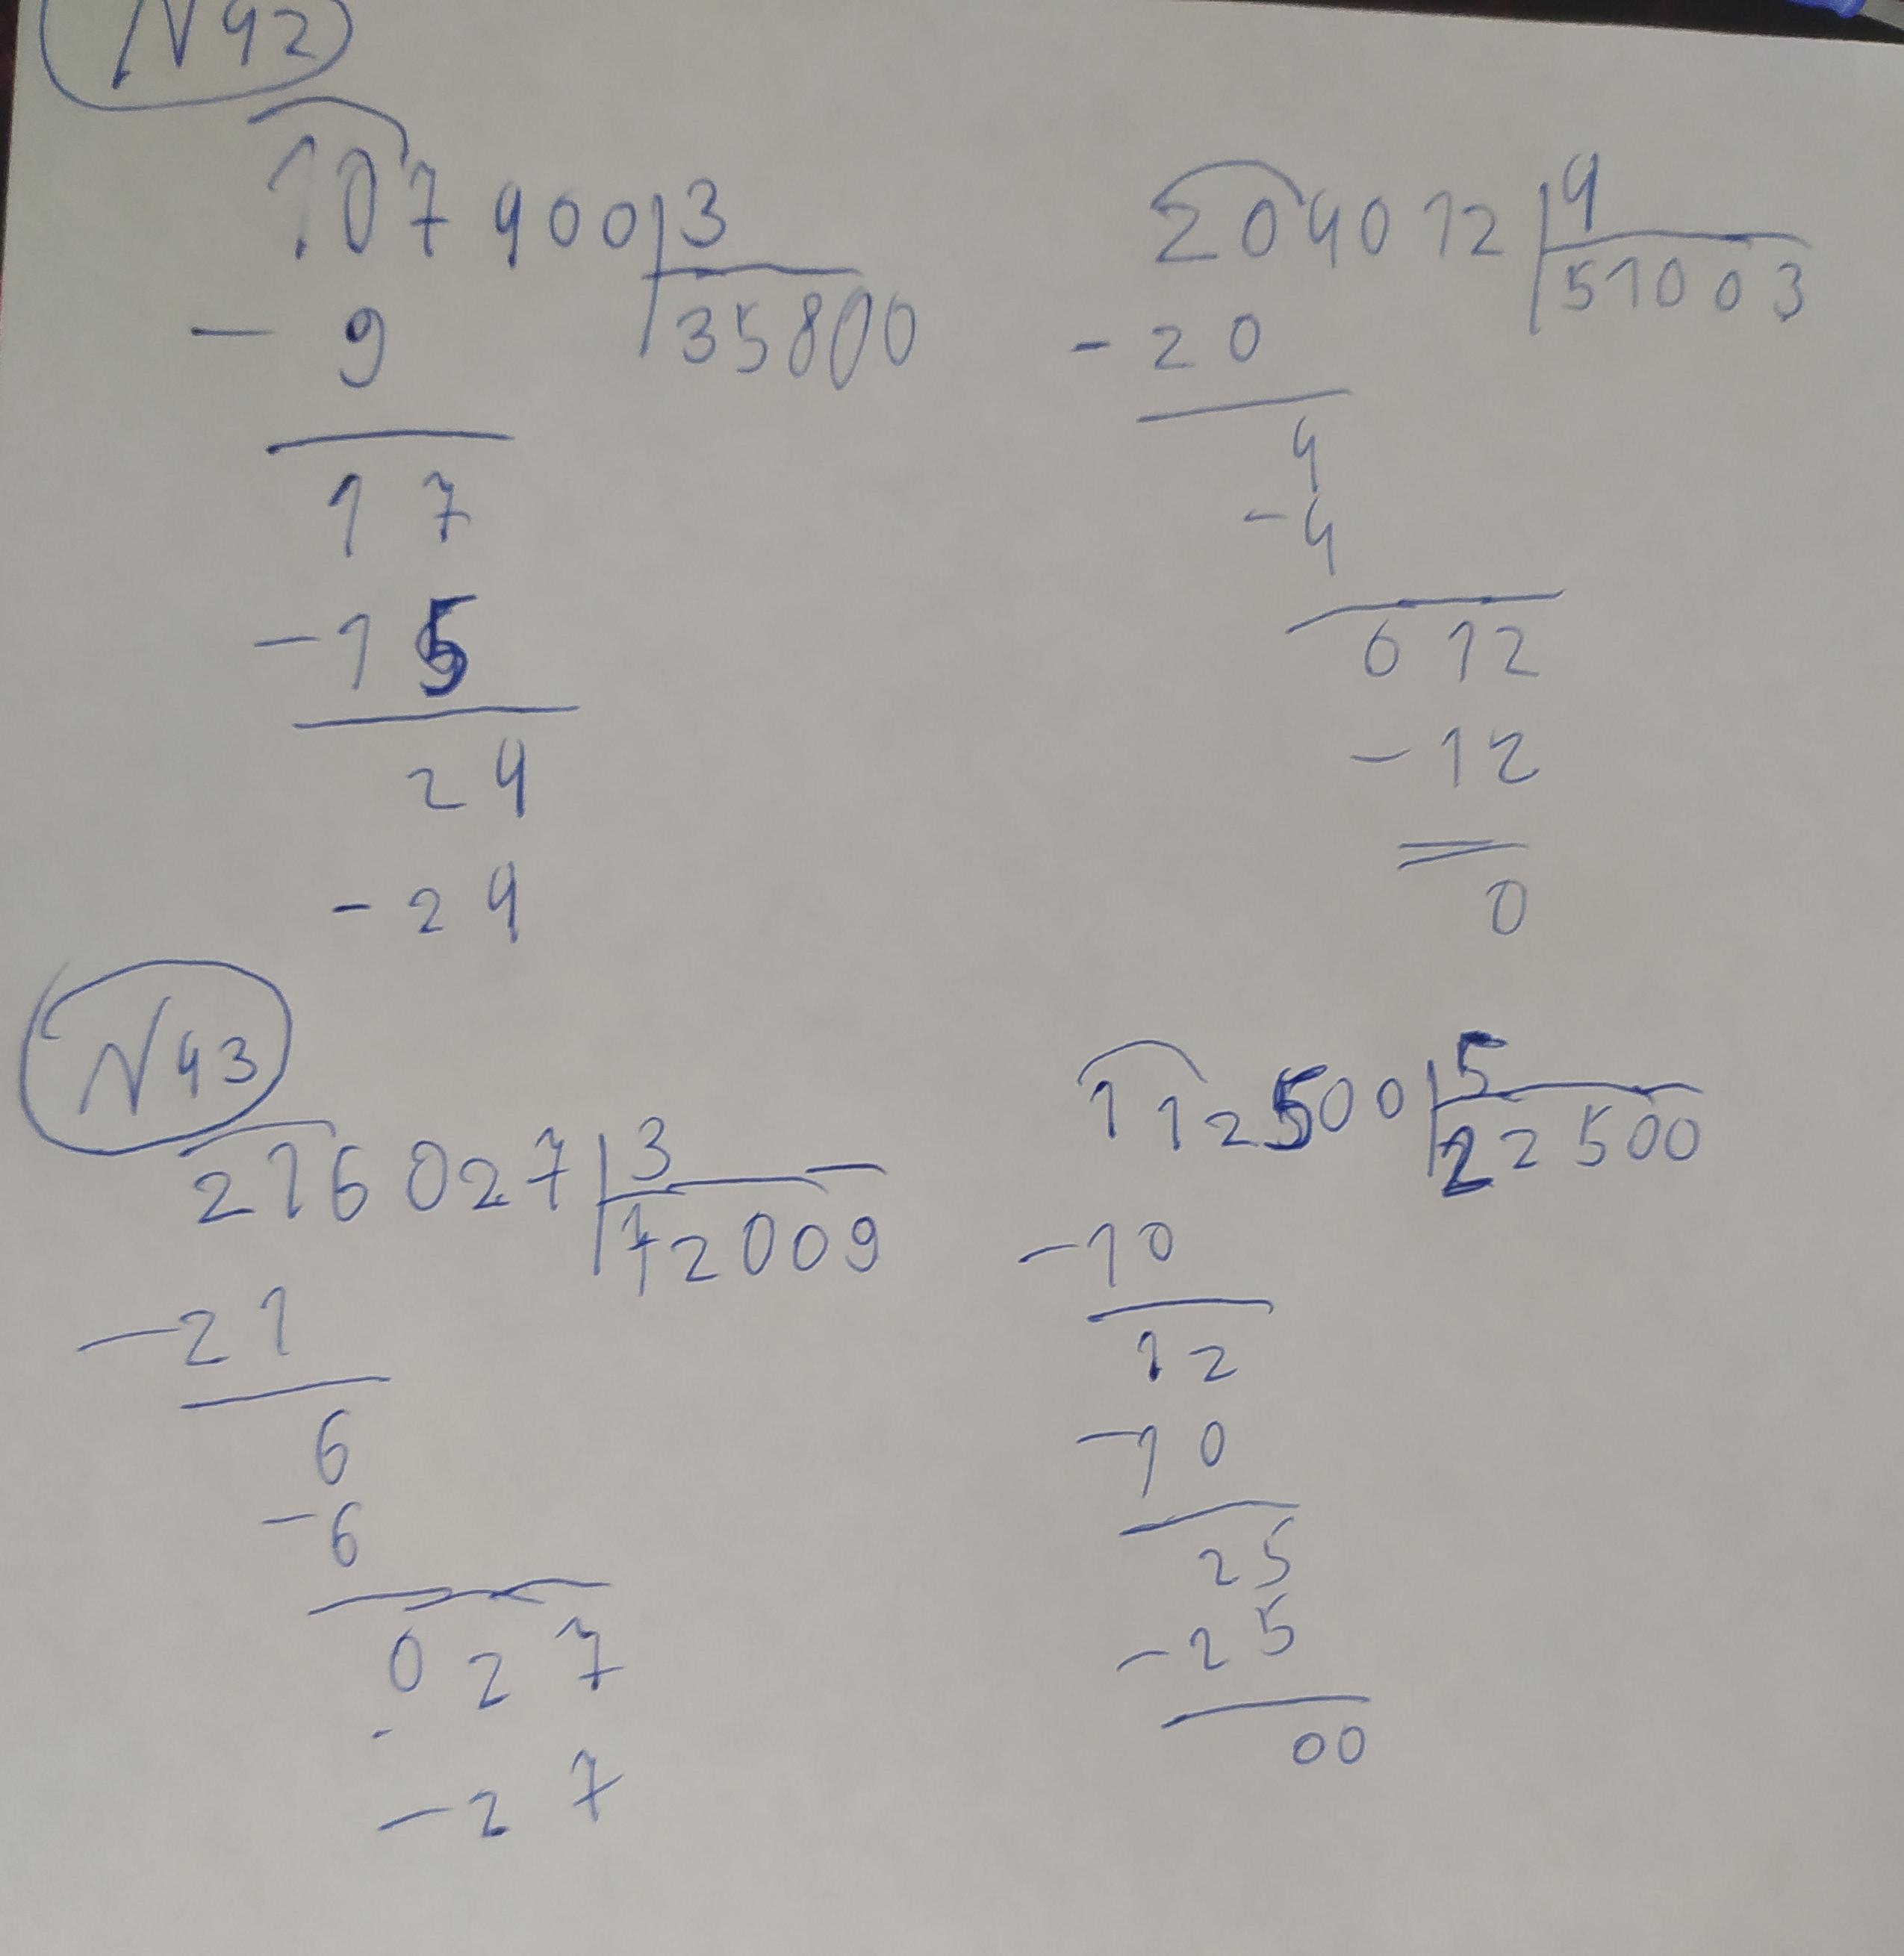 N42
107400 3
- 9 35800
17
- 15
24
- 24
204012 4
- 20 51003
4
- 4
012
- 12
0
N43
216027 3
- 21 72009
6
- 6
027
- 27
112500 5
- 10 22500
12
- 10
25
- 25
00